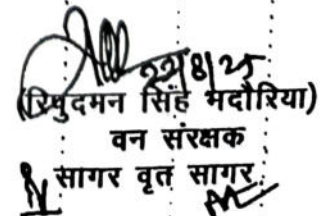 22/8/25
(रिपुदमन सिंह भदौरिया)
वन संरक्षक
सागर वृत सागर